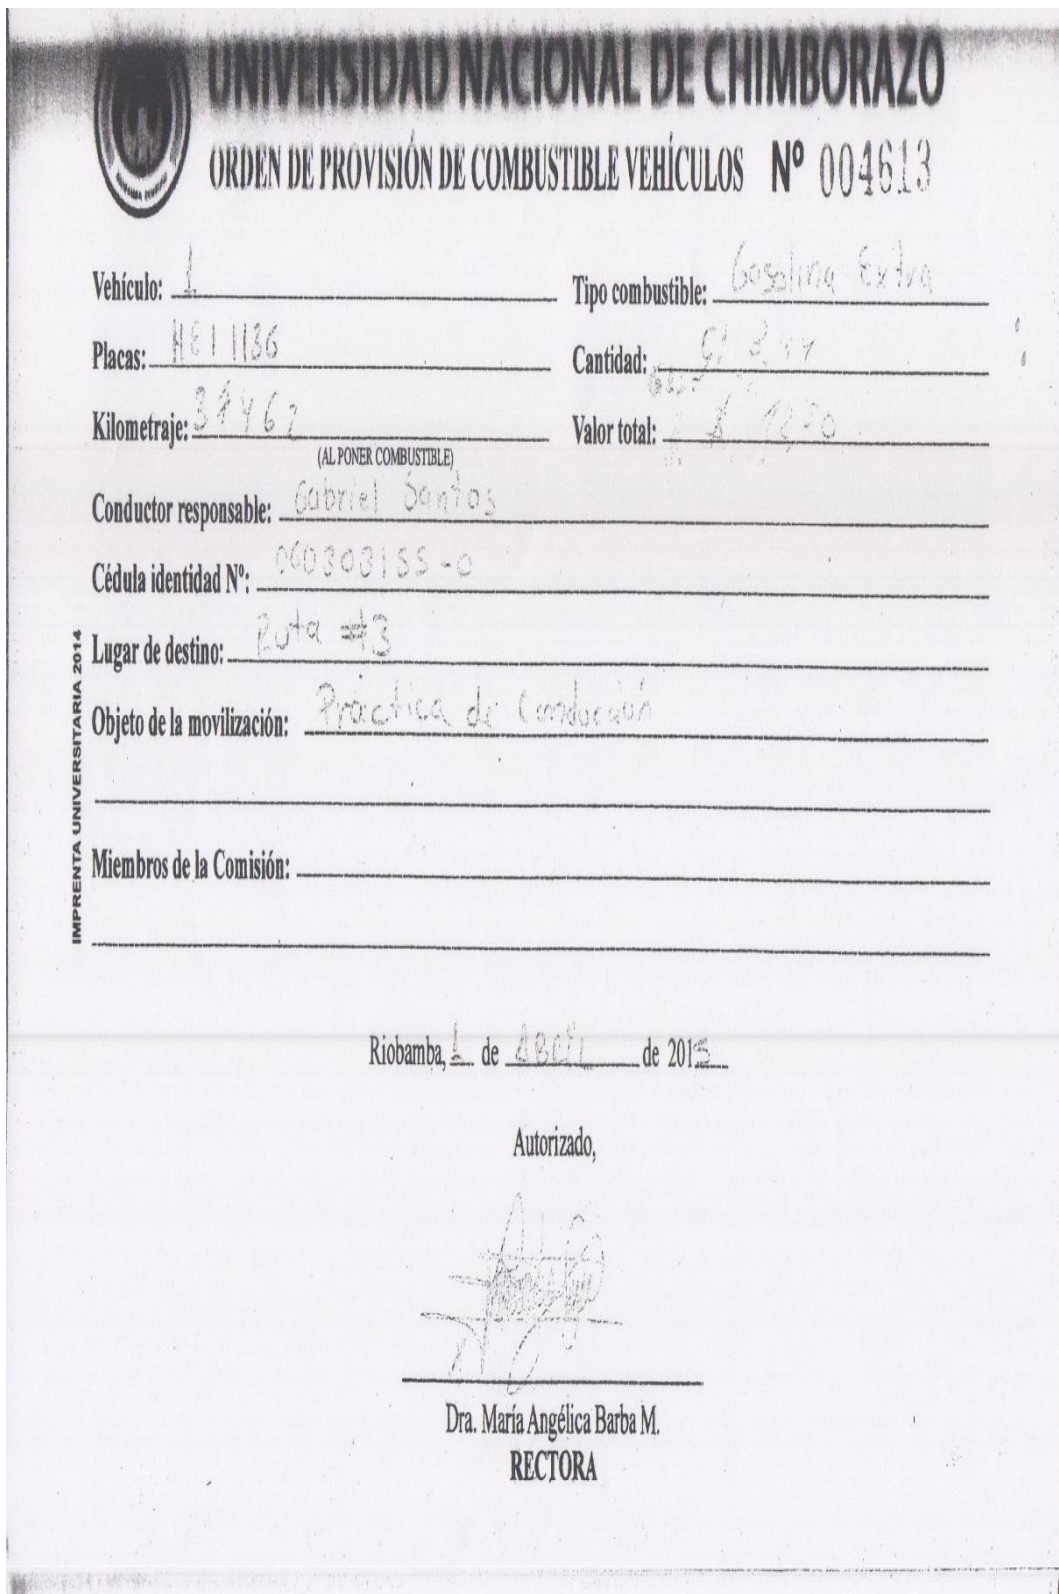 UNIVERSIDAD NACIONAL DE CHIMBORAZO
ORDEN DE PROVISIÓN DE COMBUSTIBLE VEHÍCULOS Nº 004613
Vehículo: 1 Tipo combustible: Gasolina Extra
Placas: HEI 1136 Cantidad:
Kilometraje: 37462 Valor total:
(AL PONER COMBUSTIBLE)
Conductor responsable: Gabriel Santos
Cédula identidad Nº: 060303155-0
Lugar de destino: Ruta #3
Objeto de la movilización: Práctica de Conducción
Miembros de la Comisión:
IMPRENTA UNIVERSITARIA 2014
Riobamba, 1 de ABRIL de 2015
Autorizado,
Dra. María Angélica Barba M.
RECTORA